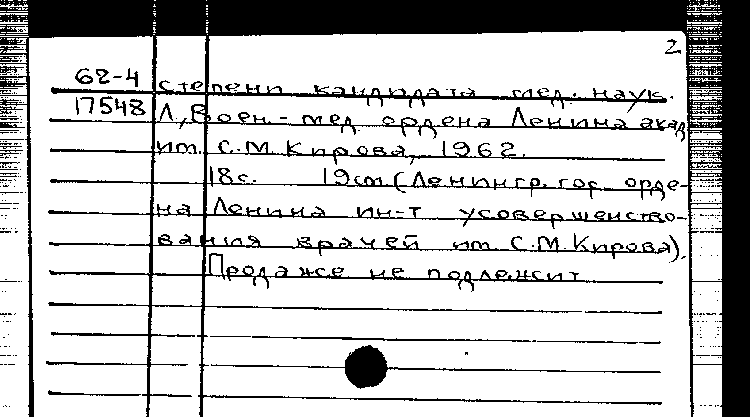 2
62-4 степени кандидата мед. наук.
17548 Л, Воен.-мед ордена Ленина акад
им. С.М.Кирова, 1962.
18с. 19см (Ленингр. гос. орде-
на Ленина ин-т усовершенство-
вания врачей им С.М.Кирова).
Продаже не подлежит